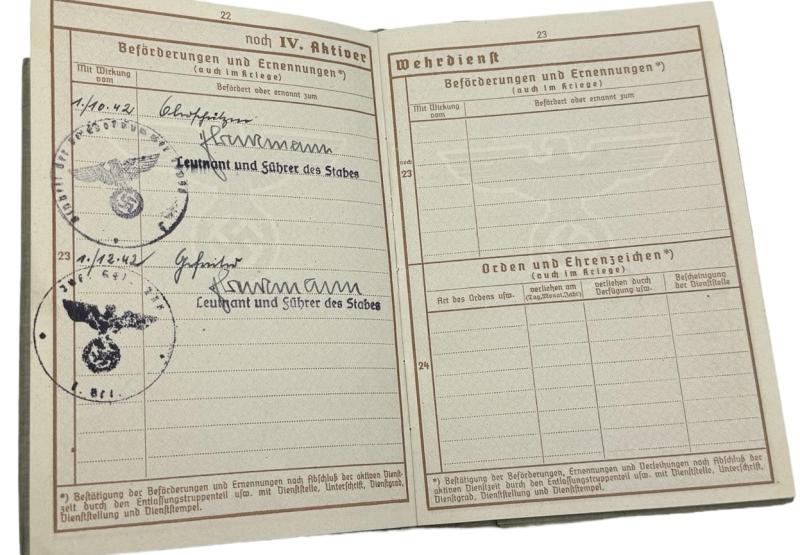 22
noch IV. Aktiver
Beförderungen und Ernennungen*)
(auch im Kriege)
Mit Wirkung vom
Befördert oder ernannt zum
1./10.42 Oberschützen
Leutnant und Führer des Stabes
23
1./12.42 Gefreiter
Leutnant und Führer des Stabes
*) Bestätigung der Beförderungen und Ernennungen nach Abschluß der aktiven Dienst-
zeit durch den Entlassungstruppenteil usw. mit Dienststelle, Unterschrift, Dienstgrad,
Dienststellung und Dienststempel.
23
Wehrdienst
Beförderungen und Ernennungen*)
(auch im Kriege)
Mit Wirkung vom
Befördert oder ernannt zum
noch
23
Orden und Ehrenzeichen*)
(auch im Kriege)
Art des Ordens usw.
verliehen am
(Tag, Monat, Jahr)
verliehen durch
Verfügung usw.
Bescheinigung
der Dienststelle
24
*) Bestätigung der Beförderungen, Ernennungen und Verleihungen nach Abschluß der
aktiven Dienstzeit durch den Entlassungstruppenteil usw. mit Dienststelle, Unterschrift,
Dienstgrad, Dienststellung und Dienststempel.